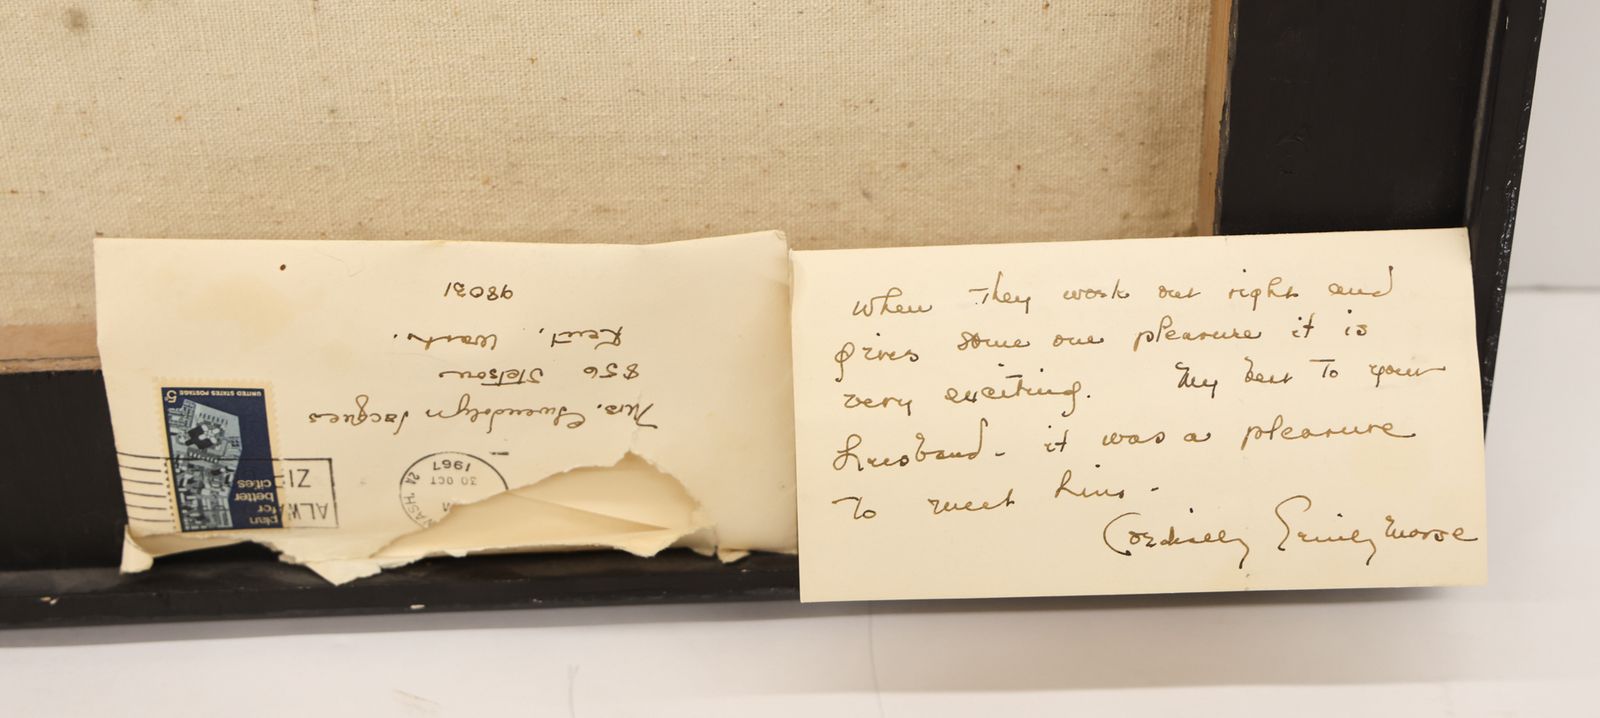 Mrs. Gwendolyn Jacques
856 Stetson
Kent, Wash.
98031
WASH.
30 OCT
1967
ALWA
ZI
plan
for
better
cities
UNITED STATES POSTAGE
5c
When They work out right and
gives some one pleasure it is
very exciting. My best To your
husband - it was a pleasure
To meet him -
Cordially Emily Morse